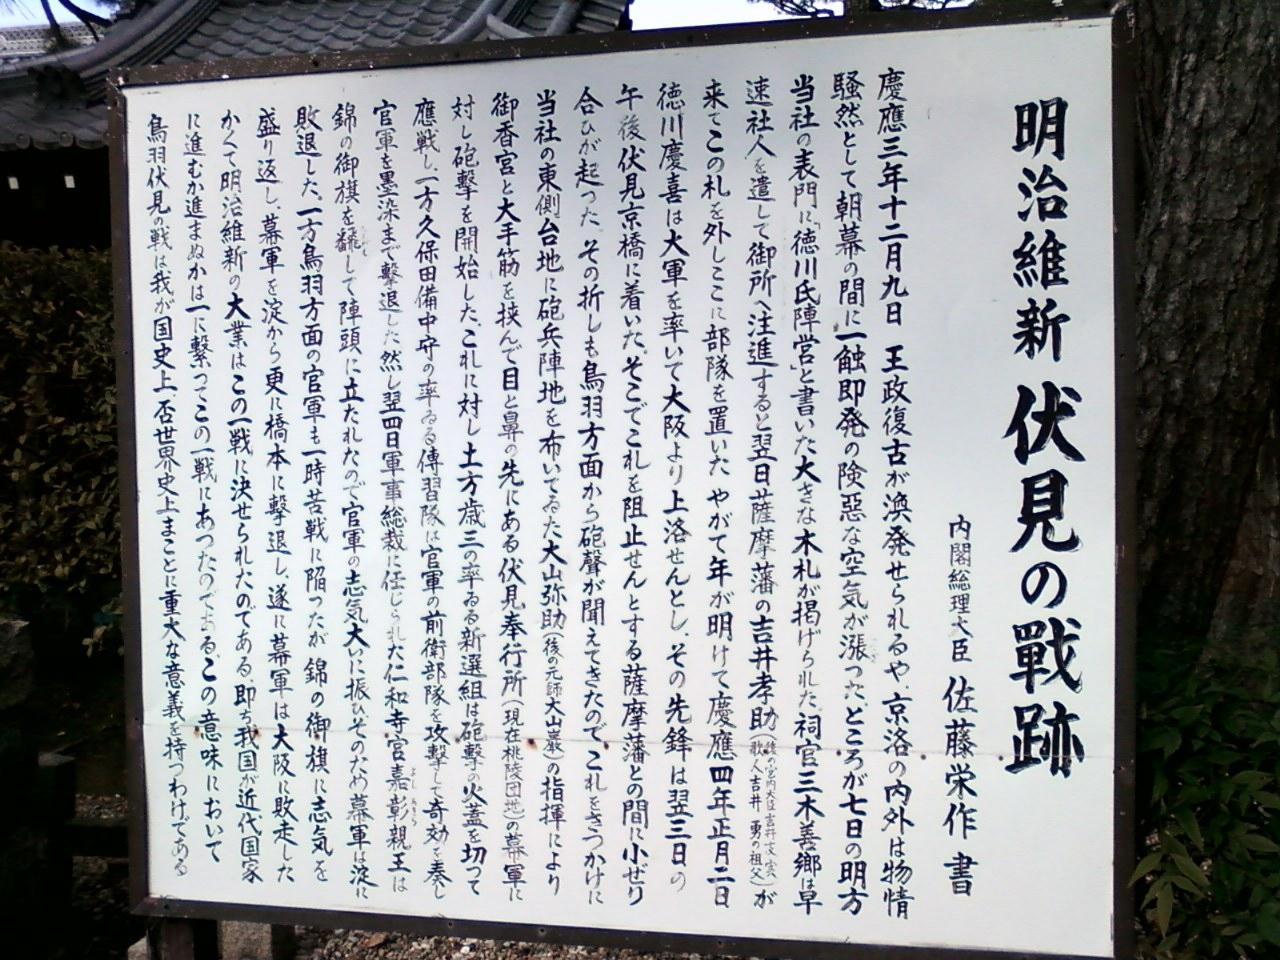 明治維新 伏見の戰跡
内閣総理大臣 佐藤栄作 書
慶應三年十二月九日 王政復古が渙発せられるや、京洛の内外は物情
騒然として朝幕の間に一触即発の険悪な空気が漲った。ところが七日の明方
当社の表門に「徳川氏陣営」と書いた大きな木札が掲げられた。祠官三木善郷は早
速社人を遣して御所へ注進すると翌日薩摩藩の吉井孝助(後の宮内大臣吉井友実 歌人吉井 勇の祖父)が
来てこの札を外しここに部隊を置いた やがて年が明けて慶應四年正月二日
徳川慶喜は大軍を率いて大阪より上洛せんとし、その先鋒は翌三日の
午後、伏見京橋に着いた。そこでこれを阻止せんとする薩摩藩との間に小ぜり
合ひが起った。その折しも鳥羽方面から砲聲が聞えてきたので、これをきつかけに
当社の東側台地に砲兵陣地を布いてゐた大山弥助(後の元師大山巌)の指揮により
御香宮と大手筋を挟んで目と鼻の先にある伏見奉行所(現在桃陵団地)の幕軍に
対し砲撃を開始した、これに対し土方歳三の率ゐる新選組は砲撃の火蓋を切って
應戦し、一方久保田備中守の率ゐる傳習隊は官軍の前衛部隊を攻撃して奇効を奏し
官軍を墨染まで撃退した 然し翌四日軍事総裁に任じられた仁和寺宮嘉彰親王は
錦の御旗を飜して陣頭に立たれたので官軍の志気大いに振ひ、そのため幕軍は淀に
敗退した、一方鳥羽方面の官軍も一時苦戦に陥ったが 錦の御旗に志気を
盛り返し、幕軍を淀から更に橋本に撃退し、遂に幕軍は大阪に敗走した
かくて明治維新の大業はこの一戦に決せられたのである、即ち我国が近代国家
に進むか進まぬかは一に繋つてこの一戦にあったのである、この意味において
鳥羽伏見の戦は我が国史上、否世界史上まことに重大な意義を持つわけである